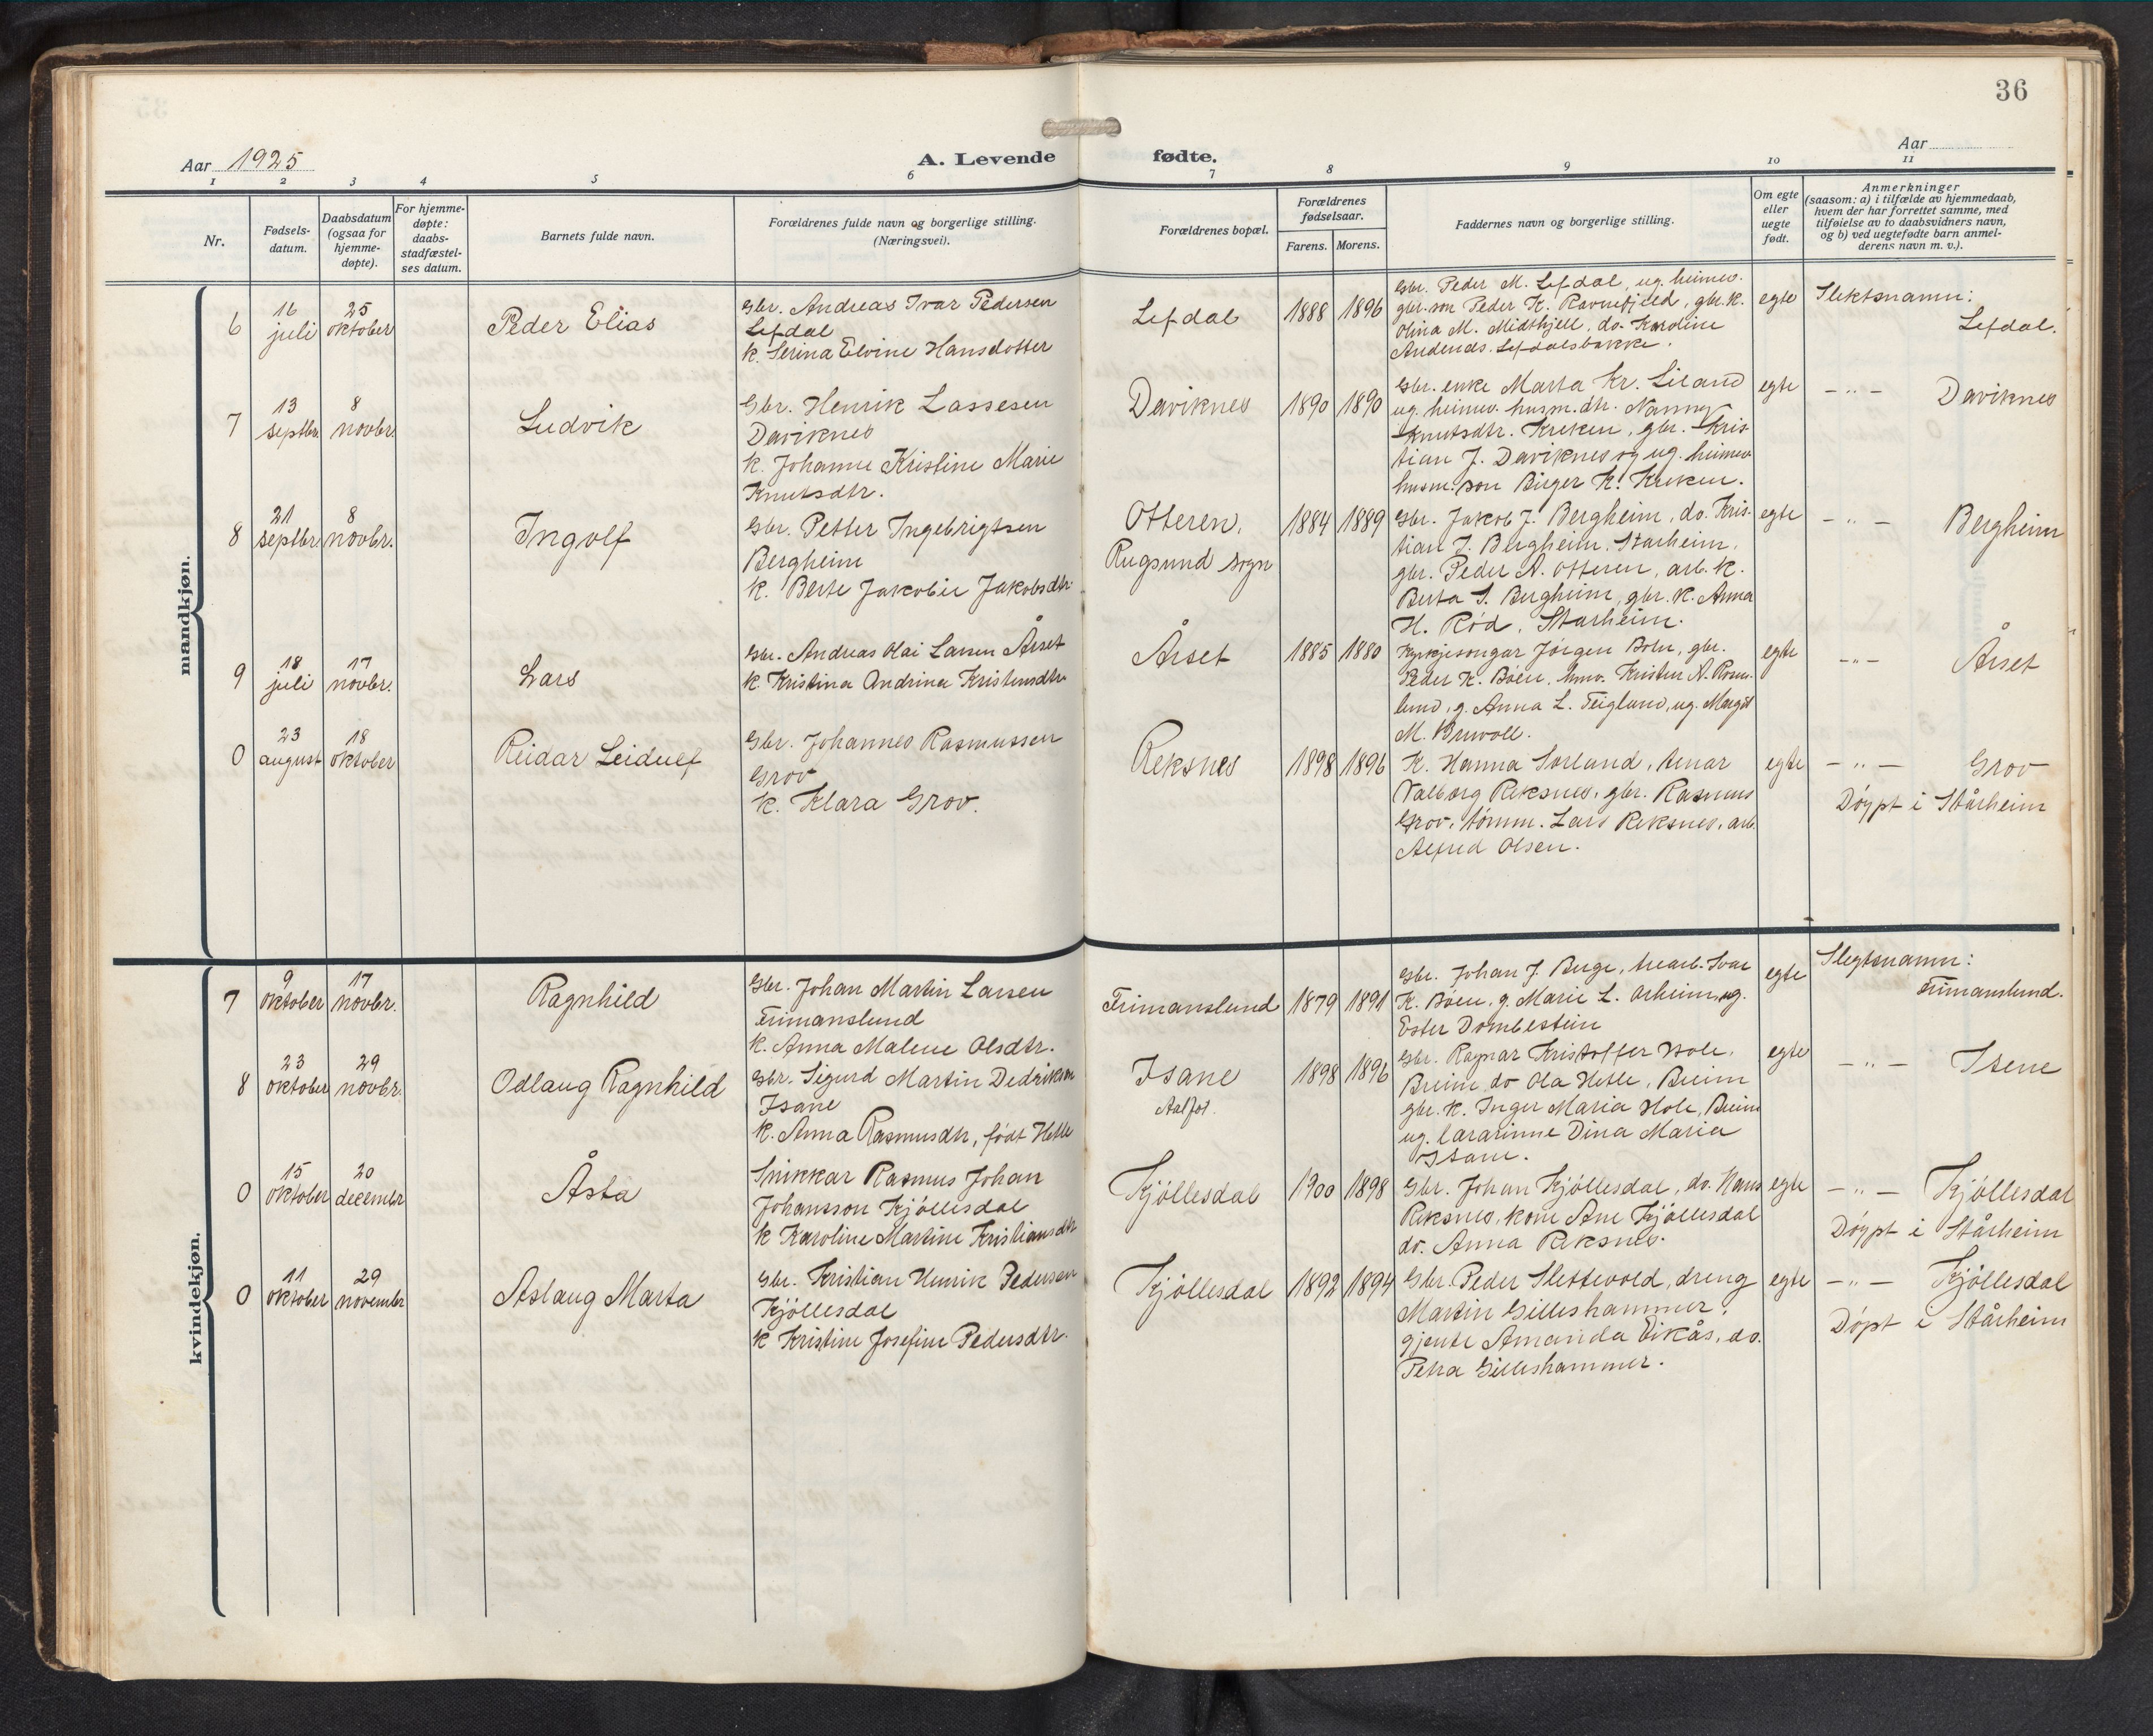 36
Aar 1925
A. Levende fødte.
Aar
1 2 3 4 5 6 7 8 9 10 11
Nr.
Fødsels-
datum.
Daabsdatum
(ogsaa for
hjemme-
døpte).
For hjemme-
døpte:
daabs-
stadfæstel-
ses datum.
Barnets fulde navn.
Forældrenes fulde navn og borgerlige stilling.
(Næringsvei).
Forældrenes bopæl.
Forældrenes
fødselsaar.
Farens. Morens.
Faddernes navn og borgerlige stilling.
Om egte
eller
uegte
født.
Anmerkninger
(saasom: a) i tilfælde av hjemmedaab,
hvem der har forrettet samme, med
tilføielse av to daabsvidners navn,
og b) ved uegtefødte barn anmel-
derens navn m. v.).
mandkjøn.
6
16
juli
25
oktober
Peder Elias
Gbr. Andreas Ivar Pedersen
Lefdal
k. Serina Elvine Hansdotter
Lefdal
1888 1896
Gbr. Peder M. Lefdal, ug. heimev.
gbr. son Peder K. Ravnefjeld, gbr. k.
Olina M. Midthjell, do. Karoline
Andends. Lefdalsbakke.
egte
Slektsnamn:
Lefdal.
7
13
septbr.
8
novbr.
Ludvik
Gbr. Henrik Lassesen
Daviknes
k. Johanne Kristine Marie
Knutsdtr.
Daviknes
1890 1890
Gbr. enke Marta Kr. Liland
ug. heimev. husm. dtr. Nanny
Knutsdtr. Kreken, gbr. Kris-
tian J. Daviknes og ug. heimev
husm. son Birger K. Kreken.
egte
— " — Daviknes
8
21
septbr.
8
novbr.
Ingolf
Gbr. Petter Ingebrigtsen
Bergheim
k. Berte Jakobie Jakobsdtr.
Otteren,
Rugsund sogn
1884 1889
Gbr. Jakob J. Bergheim, do. Kris-
tian J. Bergheim, Starheim,
gbr. Peder A. Otteren, arb. k.
Berta S. Bergheim, gbr. k. Anna
H. Rød, Starheim.
egte
— " — Bergheim
9
18
juli
17
novbr.
Lars
Gbr. Andreas Olai Larsen Årset
k. Kristina Andrina Kristensdtr.
Årset
1885 1880
Kyrkjesongar Jørgen Boln, gbr.
Peder K. Bøen, Kristen A. Rosen-
lund, g. Anna L. Teigland, ug. Margit
M. Bruvoll.
egte
— " — Årset
0
23
august
18
oktober
Reidar Leidulf
Gbr. Johannes Rasmussen
Grov
k. Klara Grov.
Reksnes
1898 1896
K. Hanna Sorland,
Valborg Reksnes, gbr. Rasmus
Grov, tømm. Lars Reksnes, arb.
Alfred Olsen.
egte
— " — Grov
Døypt i Stårheim
kvindekjøn.
7
9
oktober
17
novbr.
Ragnhild
Gbr. Johan Martin Larsen
Frimanslund
k. Anna Malene Olsdtr.
Frimanslund
1879 1891
Gbr. Johan J. Berge, trearb. Ivar
K. Bøen, g. Marie L. Orheim, ug.
Ester Dombestein
egte
Slegtsnamn:
Frimanslund.
8
23
oktober
29
novbr.
Odlaug Ragnhild
Gbr. Sigurd Martin Dedrikson
Isane
k. Anna Rasmusdtr, født Hetle
Isane
Aalfot.
1898 1896
Gbr. Ragnar Kristoffer Hole,
Breim do Ola Hetle, Breim
gbr. k. Inger Maria Hole, Breim
ug. lærarinne Dina Maria
Isane.
egte
— " — Isene
0
15
oktober
20
decembr
Åsta
Snikkar Rasmus Johan
Johansson Kjøllesdal
k Karoline Martine Kristiansdtr
Kjøllesdal
1900 1898
Gbr. Johan Kjøllesdal, do. Hans
Reksnes, kone Ane Kjøllesdal
do. Anna Reksnes.
egte
— " — Kjøllesdal
Døypt i Stårheim
0
11
oktober
29
novembr
Aslaug Marta
Gbr. Kristian Henrik Pedersen
Kjøllesdal
k Kristine Josefine Pedersdtr.
Kjøllesdal
1892 1894
Gbr. Peder Slettevold, dreng
Martin Gilleshammer,
gjente Amanda Eikås, do.
Petra Gilleshammer.
egte
— " — Kjøllesdal
Døpt i Stårheim